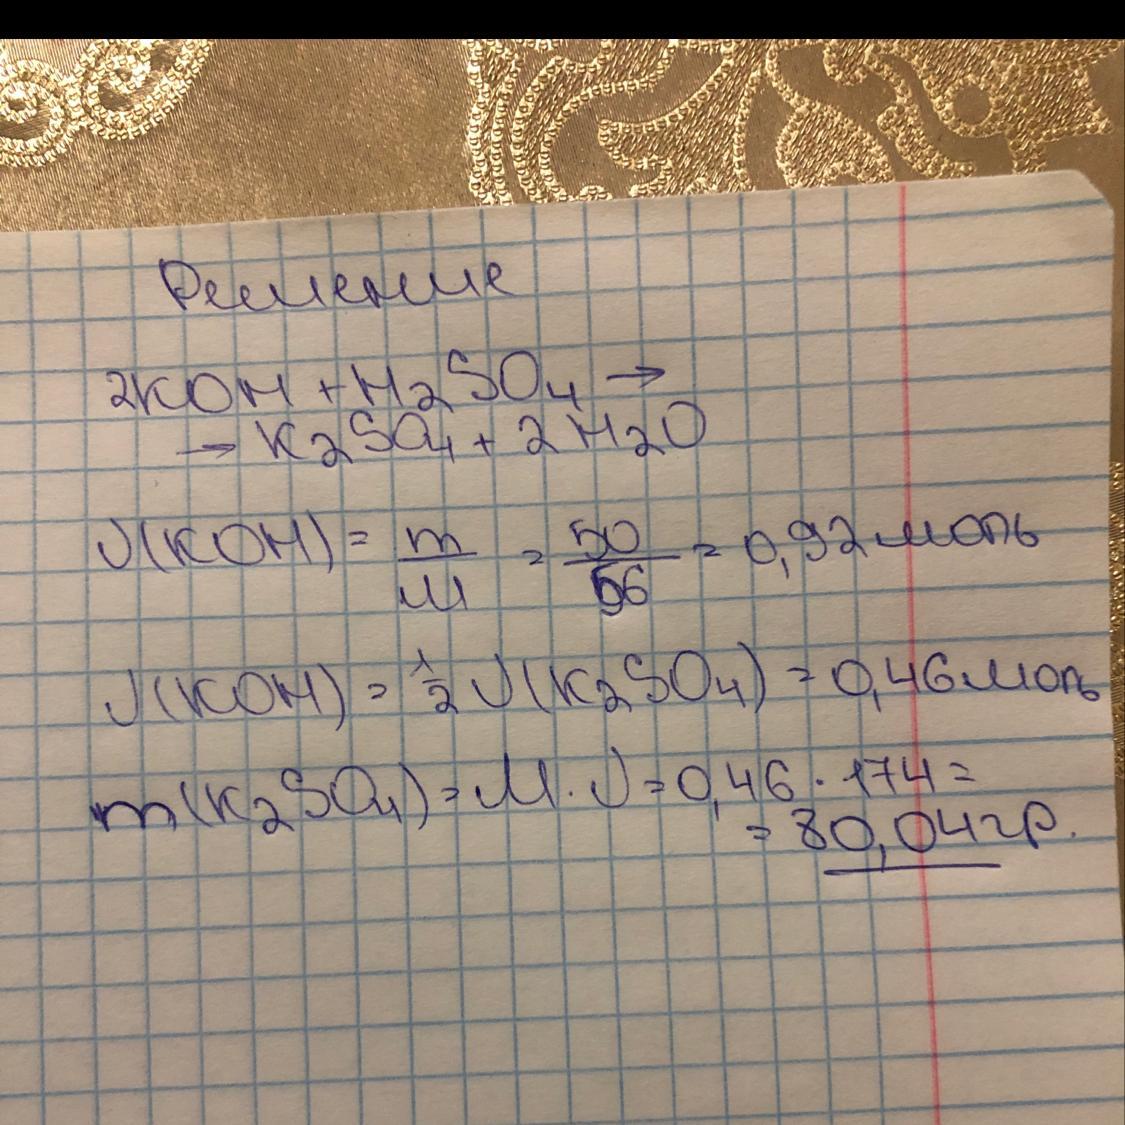 Решение
2KOH + H2SO4 →
→ K2SO4 + 2H2O
ν(KOH) = m/M = 50/56 = 0,92 моль
ν(KOH) = 1/2 ν(K2SO4) = 0,46 моль
m(K2SO4) = M · ν = 0,46 · 174 =
= 80,04 гр.